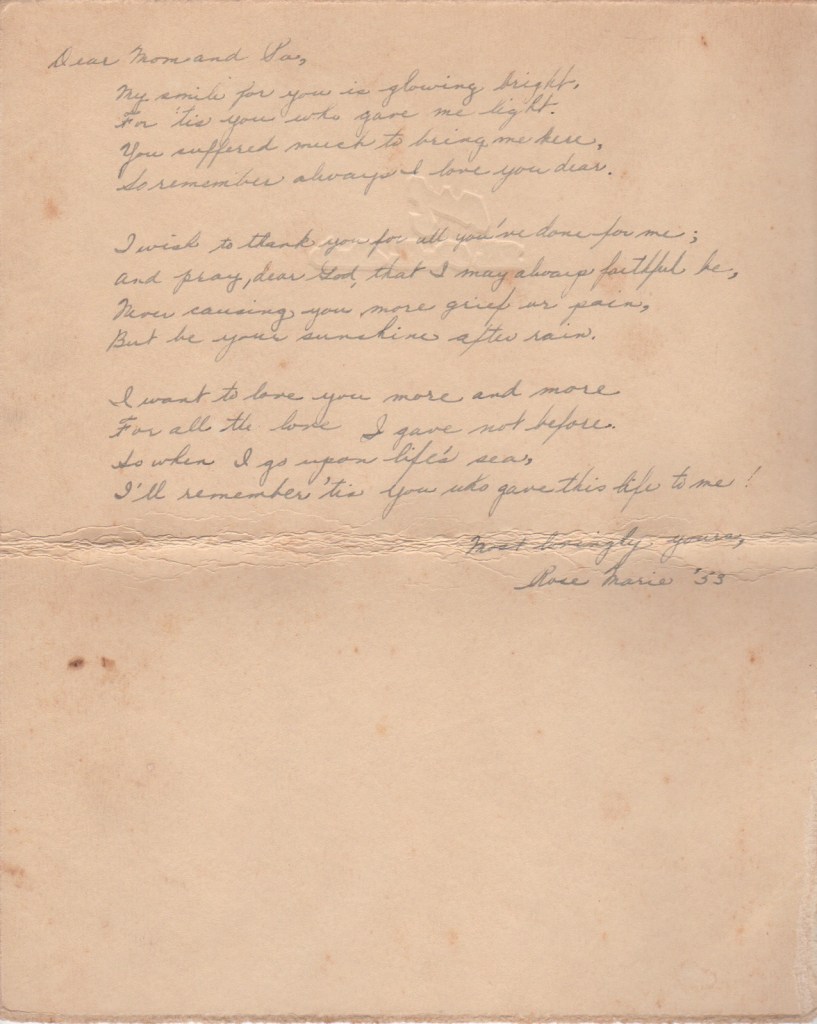 Dear Mom and Pa,
My smile for you is glowing bright,
For 'tis you who gave me light.
You suffered much to bring me here,
So remember always I love you dear.
I wish to thank you for all you've done for me;
And pray, dear God, that I may always faithful be,
Never causing you more grief or pain,
But be your sunshine after rain.
I want to love you more and more
For all the love I gave not before.
So when I go upon life's sea,
I'll remember 'tis you who gave this life to me!
Most lovingly yours,
Rose Marie '53